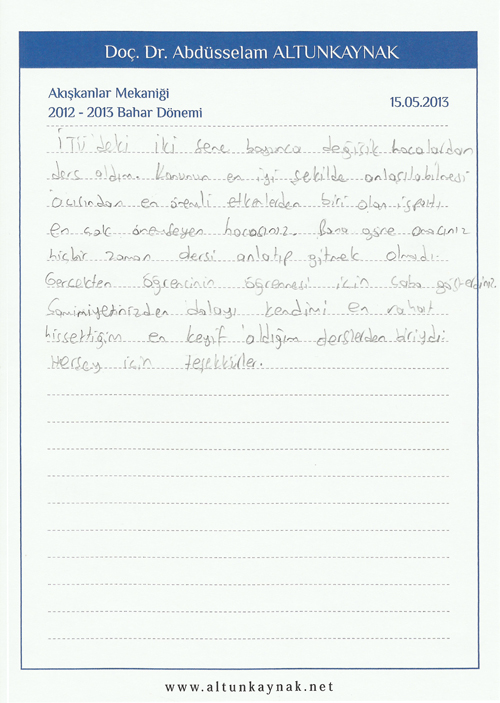 Doç. Dr. Abdüsselam ALTUNKAYNAK
Akışkanlar Mekaniği
2012 - 2013 Bahar Dönemi
15.05.2013
İTÜ'deki iki sene boyunca değişik hocalardan
ders aldım. Konunun en iyi şekilde anlaşılabilmesi
açısından en önemli etkenlerden biri olan ispatı
en çok önemseyen hocasınız. Bana göre amacınız
hiçbir zaman dersi anlatıp gitmek olmadı.
Gerçekten öğrencinin öğrenmesi için çaba gösterdiniz.
Samimiyetinizden dolayı kendimi en rahat
hissettiğim en keyif aldığım derslerden biriydi.
Herşey için teşekkürler.
www.altunkaynak.net